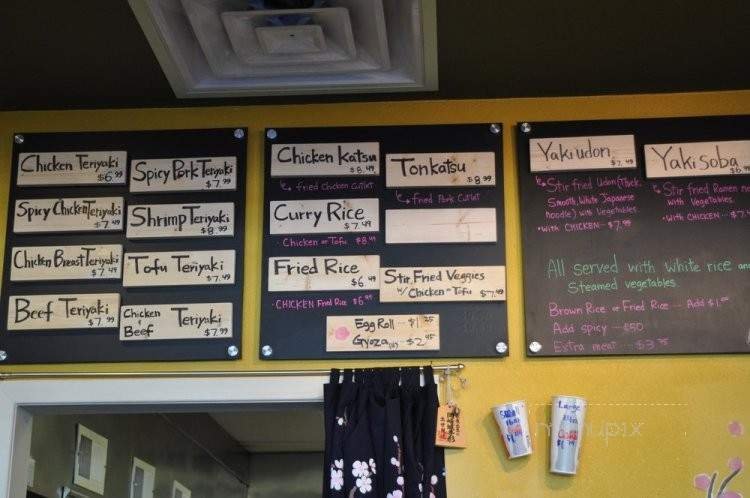 Chicken Teriyaki
$6.99
Spicy Pork Teriyaki
$7.99
Spicy Chicken Teriyaki
$7.49
Shrimp Teriyaki
$8.99
Chicken Breast Teriyaki
$7.49
Tofu Teriyaki
$7.49
Beef Teriyaki
$7.99
Chicken Teriyaki
Beef $7.99
Chicken Katsu
$8.49
fried Chicken Cutlet
Tonkatsu
$8.99
fried Pork Cutlet
Curry Rice
$7.49
- Chicken or Tofu $8.49
Fried Rice
$6.49
- CHICKEN Fried Rice $6.95
Stir Fried Veggies
w/ Chicken or Tofu
Egg Roll --- $1.25
Gyoza --- $2.95
Yakiudon
$7.49
Stir fried Udon (Thick,
Smooth, White Japanese
noodle) with Vegetables
• WITH CHICKEN -- $7.99
Yakisoba
Stir fried Ramen
with Vegetables
• WITH CHICKEN ---
All served with white rice and
Steamed vegetables
Brown Rice or Fried Rice --- Add $1.00
Add spicy --- ¢50
Extra meat --- $3.75
Large
menupix